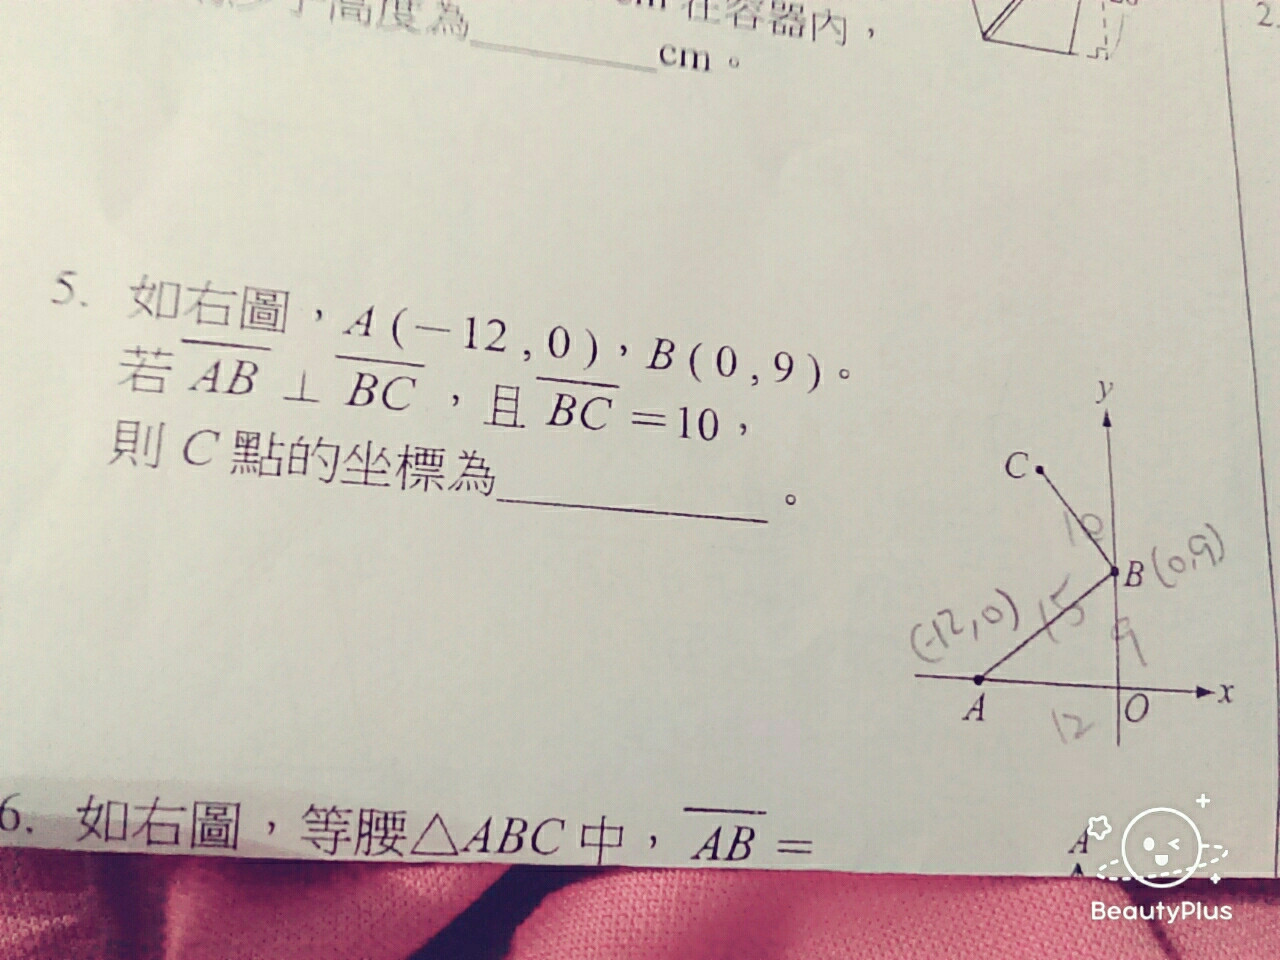 高度為________cm。
在容器內，
2.
5. 如右圖，A(－12,0)，B(0,9)。
若AB⊥BC，且BC=10，
則C點的坐標為________。
y
C
10
B (0,9)
(-12,0)
15
9
A
O
x
12
6. 如右圖，等腰△ABC中，AB=
A
BeautyPlus